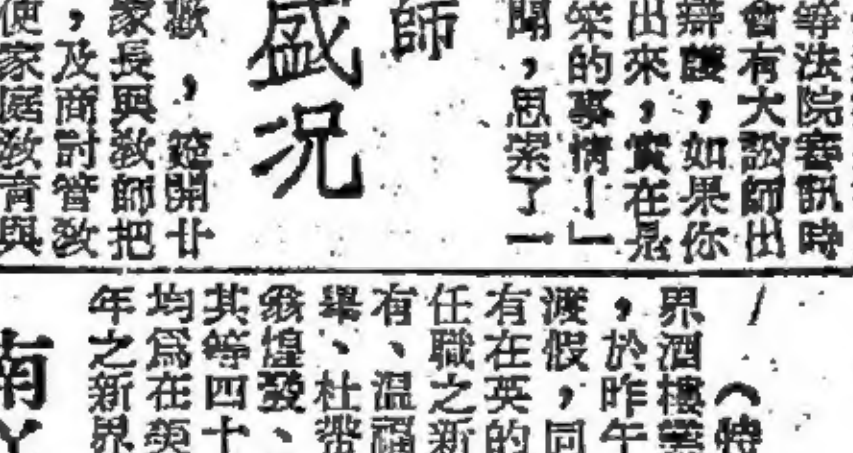 等法院審訊時
會有大訟師出
辯護，如果你
出來，實在是
笨的事情！」
聞，思索了一
師
盛況
歡，筵開廿
家長與教師把
，及商討管教
使家庭教育與
（特
界酒樓業
，於昨午
渡假，同
有在英的
任職之新
有、溫福
舉、杜
煌發、
其等四十
均為在英
年之新界
南丫